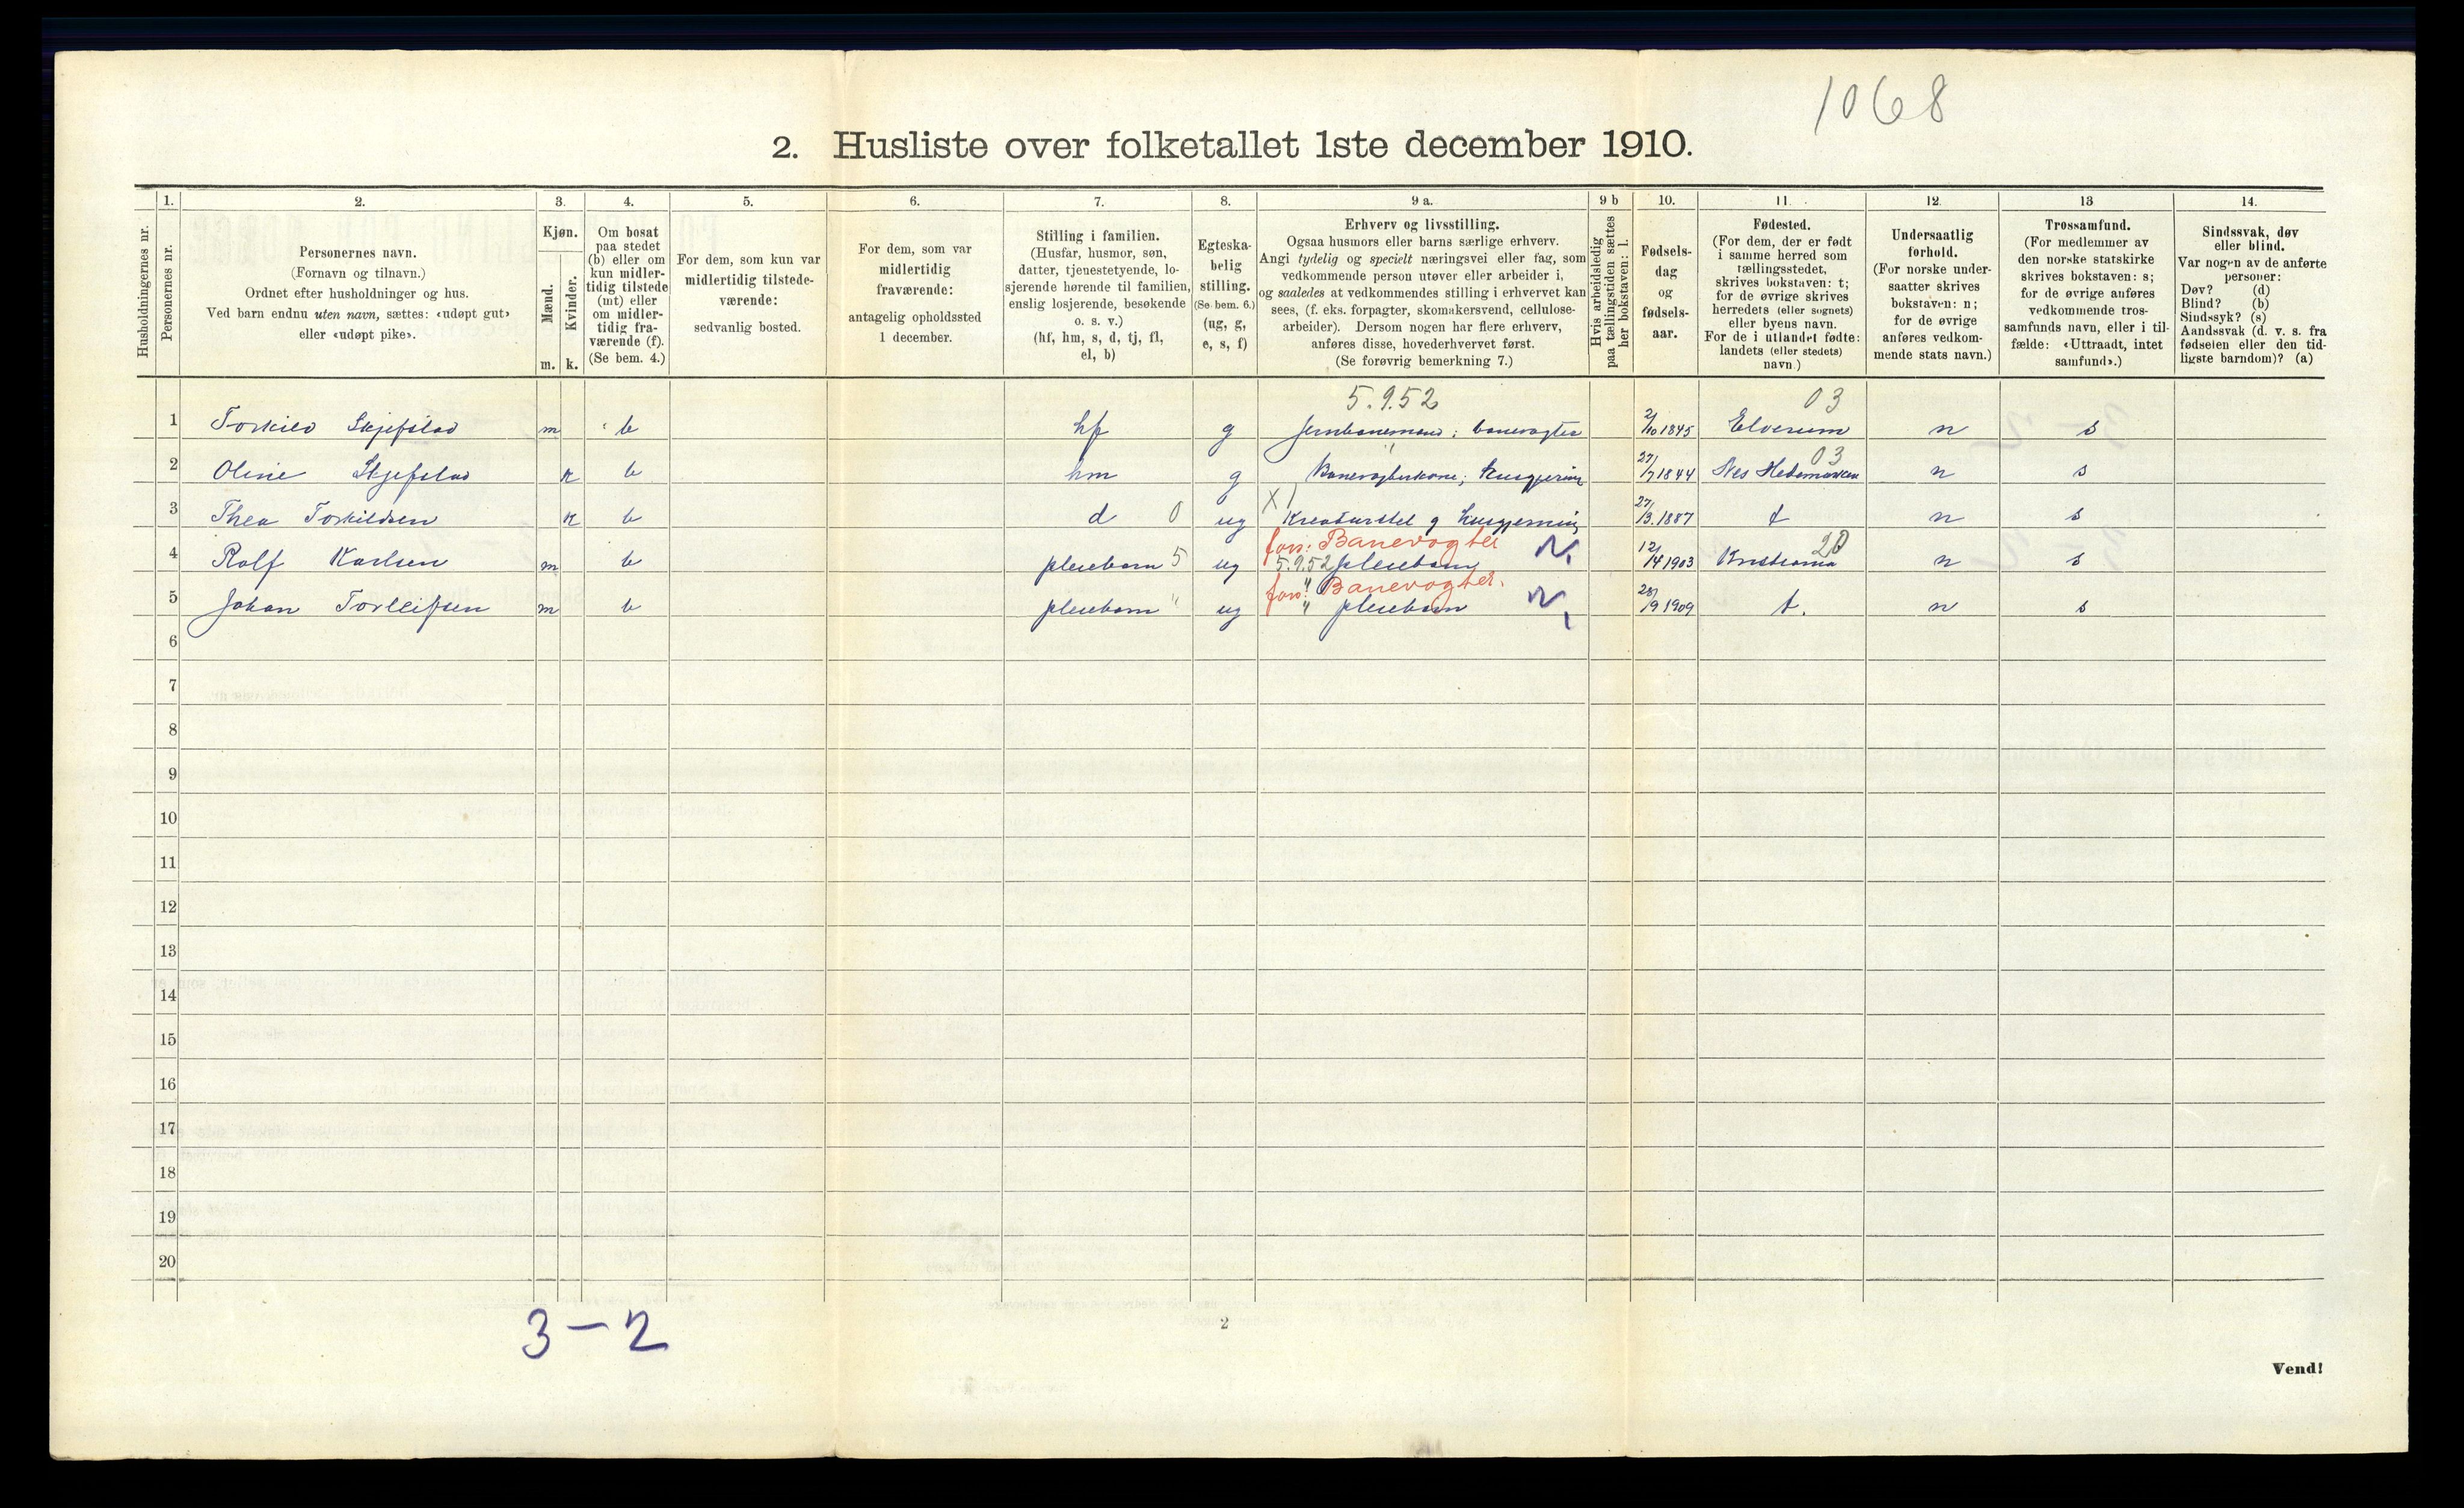 1068
2. Husliste over folketallet 1ste december 1910.
Husholdningernes nr.
1.
Personernes nr.
2.
Personernes navn.
(Fornavn og tilnavn.)
Ordnet efter husholdninger og hus.
Ved barn endnu uten navn, sættes: «udøpt gut»
eller «udøpt pike».
3.
Kjøn.
Mænd.
Kvinder.
m. k.
4.
Om bosat
paa stedet
(b) eller om
kun midler-
tidig tilstede
(mt) eller
om midler-
tidig fra-
værende (f).
(Se bem. 4.)
5.
For dem, som kun var
midlertidig tilstede-
værende:
sedvanlig bosted.
6.
For dem, som var
midlertidig
fraværende:
antagelig opholdssted
1 december.
7.
Stilling i familien.
(Husfar, husmor, søn,
datter, tjenestetyende, lo-
sjerende hørende til familien,
enslig losjerende, besøkende
o. s. v.)
(hf, hm, s, d, tj, fl,
el, b)
8.
Egteska-
belig
stilling.
(Se bem. 6.)
(ug, g,
e, s, f)
9 a.
Erhverv og livsstilling.
Ogsaa husmors eller barns særlige erhverv.
Angi tydelig og specielt næringsvei eller fag, som
vedkommende person utøver eller arbeider i,
og saaledes at vedkommendes stilling i erhvervet kan
sees, (f. eks. forpagter, skomakersvend, cellulose-
arbeider). Dersom nogen har flere erhverv,
anføres disse, hovederhvervet først.
(Se forøvrig bemerkning 7.)
9 b
Hvis arbeidsledig
paa tællingstiden sættes
her bokstaven: l.
10.
Fødsels-
dag
og
fødsels-
aar.
11.
Fødested.
(For dem, der er født
i samme herred som
tællingsstedet,
skrives bokstaven: t;
for de øvrige skrives
herredets (eller sognets)
eller byens navn.
For de i utlandet fødte:
landets (eller stedets)
navn.)
12.
Undersaatlig
forhold.
(For norske under-
saatter skrives
bokstaven: n;
for de øvrige
anføres vedkom-
mende stats navn.)
13
Trossamfund.
(For medlemmer av
den norske statskirke
skrives bokstaven: s;
for de øvrige anføres
vedkommende tros-
samfunds navn, eller i til-
fælde: «Uttraadt, intet
samfund».)
14.
Sindssvak, døv
eller blind.
Var nogen av de anførte
personer:
Døv? (d)
Blind? (b)
Sindssyk? (s)
Aandssvak (d. v. s. fra
fødselen eller den tid-
ligste barndom)? (a)
5.9.52 03
1 Torkild Skjefstad m b hf g Jernbanemand; banevogter 2/10 1845 Elverum n s
" 03
2 Oline Skjefstad k b hm g Banevogterkone; husgjerning 27/7 1844 Nes Hedemarken n s
3 Thea Torkildsen k b d 0 ug X) Kreaturstel g husgjerning 27/3. 1887 t n s
fors: Banevogter 20
4 Rolf Karlsen m b pleiebarn 5 ug 5.9.52 pleiebarn N, 12/4 1903 Kristiania n s
fors: " Banevogter.
5 Johan Torleifsen m b pleiebarn " ug " pleiebarn N, 28/9 1909 t. n s
6
7
8
9
10
11
12
13
14
15
16
17
18
19
20
3 – 2
2
Vend!